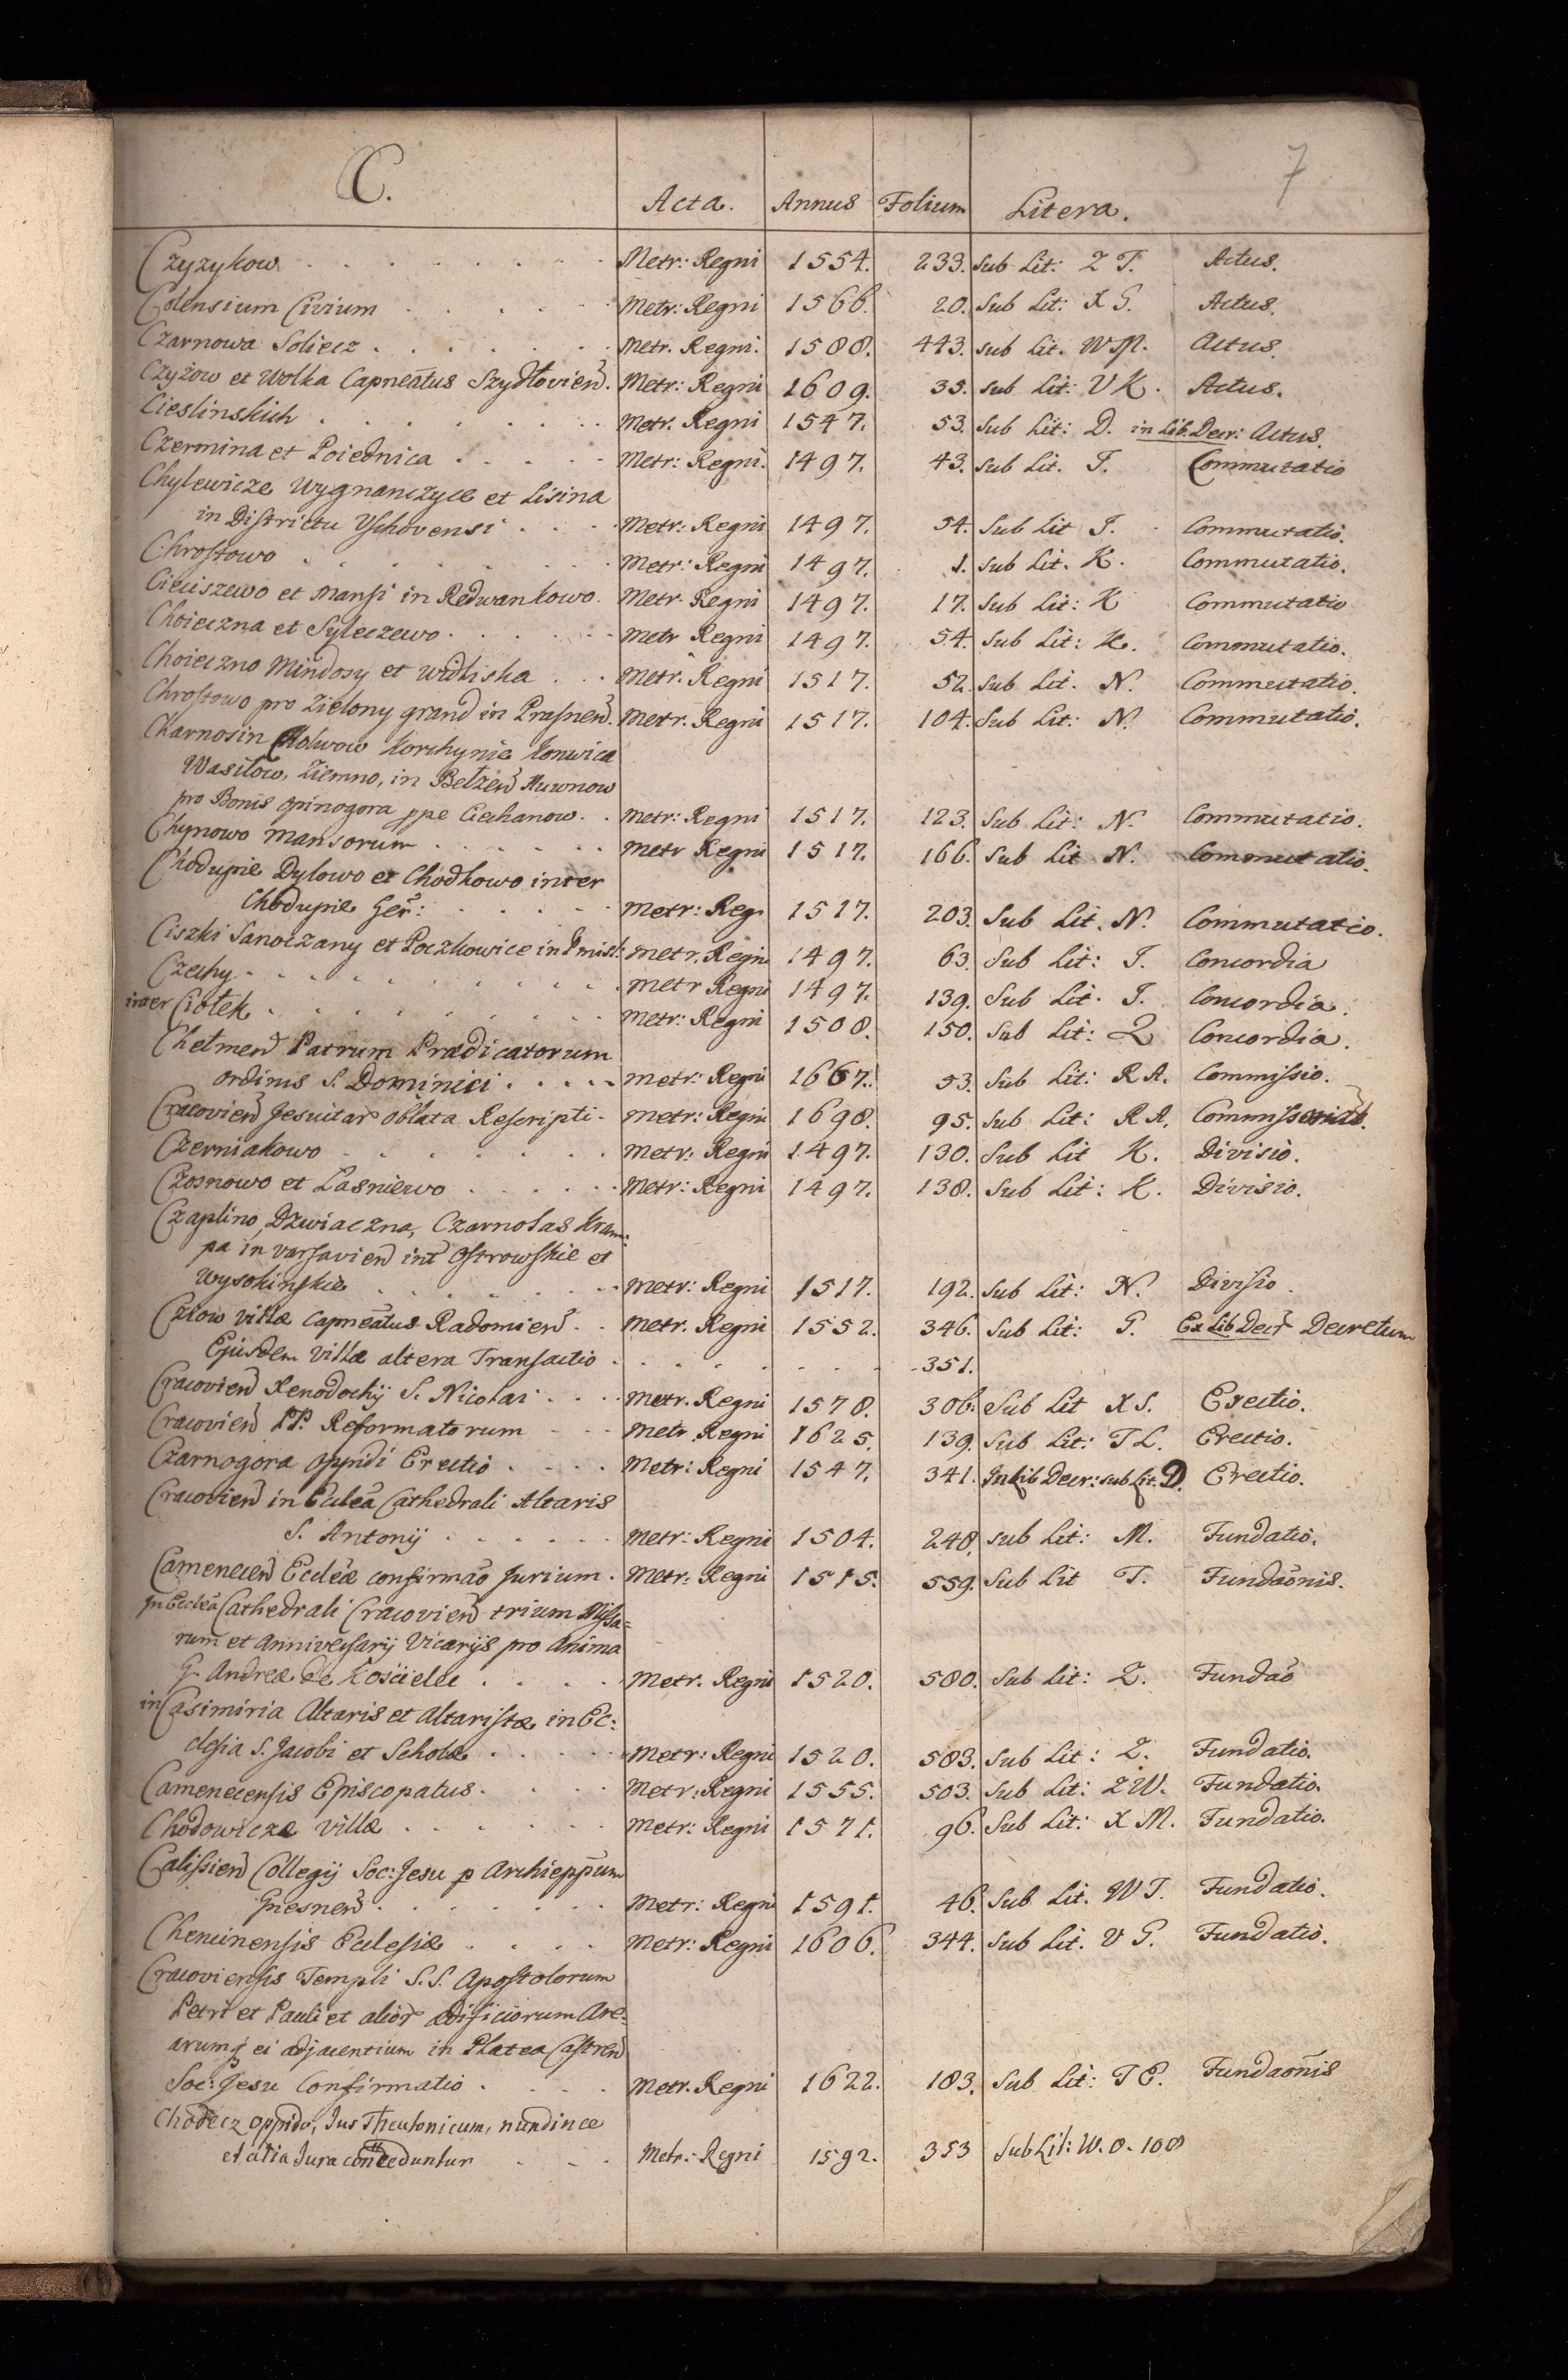 7
C. Acta. Annus Folium Litera.
Czyzykow . . . Metr: Regni 1554. 233. Sub Lit: Z T. Actus.
Colensium Civium . . . Metr: Regni 1566. 20. Sub Lit: X G. Actus.
Czarnowa Soliecz . . . Metr. Regni. 1588. 443. sub Lit. W N. Actus.
Czyżow et Wolka Capneatus Szydłovien. Metr: Regni 1609. 35. sub Lit: V K. Actus.
Cieslinskich . . . Metr. Regni 1547. 53. Sub Lit: D. in Lib. Decr: Actus.
Czermina et Poiednica . . . Metr: Regni. 1497. 43. Sub Lit. J. Commutatio
Chylewicze Wygnanczyce et Lisina
in Districtu Yschovensi . . . Metr: Regni 1497. 54. Sub Lit J. Commutatio.
Chrostowo . . . Metr: Regni 1497. 1. Sub Lit. K. Commutatio.
Cieciszewo et Mansi in Redwankowo. Metr. Regni 1497. 17. Sub Lit: K Commutatio
Choieczna et Syleczewo . . . Metr Regni 1497. 54. Sub Lit: K. Commutatio.
Choieczno Mindosy et Widliska . . . Metr. Regni 1517. 52. Sub Lit. N. Commutatio.
Chrostowo pro Zielony grand in Prasnen. Metr. Regni 1517. 104. Sub Lit: N. Commutatio.
Charnosin Cholwow Korchynie Konwica
Wasilow, Ziemno, in Bełzen Huwnow
pro Bonis Opinogora ppe Ciechanow. . Metr: Regni 1517. 123. Sub Lit: N. Commutatio.
Chynowo Mansorum . . . Metr Regni 1517. 166. Sub Lit N. Commutatio.
Chodupie Dylowo et Chodkowo inter
Chodupie Ger: . . . Metr: Reg. 1517. 203. Sub Lit. N. Commutatio.
Ciszki Sanoczany et Poczkowice in Pmisl: Metr. Regni 1497. 63. Sub Lit: J. Concordia
Czechy . . . Metr Regni 1497. 139. Sub Lit. J. Concordia.
inter Ciołek . . . Metr: Regni 1508. 150. Sub Lit: Q Concordia.
Chełmen Patrum Prædicatorum
ordinis S. Dominici . . . Metr: Regni 1667. 53. Sub Lit: R A. Commissio.
Cracovien Jesuitar Oblata Rescripti. Metr: Regni 1698. 95. Sub Lit: R A. Commissorial.
Czerniakowo . . . Metr: Regni 1497. 130. Sub Lit K. Divisio.
Czosnowo et Lasniewo . . . Metr: Regni 1497. 138. Sub Lit: K. Divisio.
Czaplino, Dzwiaczna, Czarnolas Kram:
pa in Varsavien int Ostrowskie et
Wysokinskie . . . Metr: Regni 1517. 192. Sub Lit: N. Divisio.
Czow villæ Capneatus Radomien . . Metr. Regni 1552. 346. Sub Lit: G. Ex Lib Decr Decretum
Ejusdem Villæ altera Transactio . . . 351.
Cracovien Xenodochij S. Nicolai . . . Metr. Regni 1578. 306. Sub Lit X S. Erectio.
Cracovien PP. Reformatorum . . . Metr Regni 1625. 139. Sub Lit: T L. Erectio.
Czarnogora Oppidi Erectio . . . Metr: Regni 1547. 341. In Lib Decr: sub Lit. D. Erectio.
Cracovien in Ecclea Cathedrali Altaris
S. Antonij . . . Metr: Regni 1504. 248. Sub Lit: M. Fundatio.
Camenecen Eccleæ confirmao Jurium. Metr: Regni 1515. 559. Sub Lit T. Fundaonis.
in Ecclea Cathedrali Cracovien trium Missa=
rum et Anniversarij Vicarijs pro anima
G. Andreæ de Kościelec . . . Metr. Regni 1520. 580. Sub Lit: Z. Fundao
in Casimiria Altaris et Altaristæ in Ec:
clesia S. Jacobi et Scholæ . . . Metr: Regni 1520. 583. Sub Lit: Z. Fundatio.
Camenecensis Episcopatus. . . . Metr: Regni 1555. 503. Sub Lit: Z W. Fundatio.
Chodowicze villæ . . . Metr: Regni 1571. 96. Sub Lit: X M. Fundatio.
Calissien Collegij Soc: Jesu p Archieppum
Gnesnen . . . Metr: Regni 1591. 46. Sub Lit. W T. Fundatio.
Chencinensis Ecclesiæ . . . Metr: Regni 1606. 344. Sub Lit. V G. Fundatio.
Cracoviensis Templi S.S. Apostolorum
Petri et Pauli et alior Ædificiorum Are=
arumq ei adjacentium in Platea Castren
Soc: Jesu Confirmatio . . . Metr. Regni 1622. 183. Sub Lit: T E. Fundaonis
Chodecz oppido, Jus Theutonicum, nundinæ
et alia Jura conceduntur . . . Metr: Regni 1592. 353 Sub Lit: W. O. 108